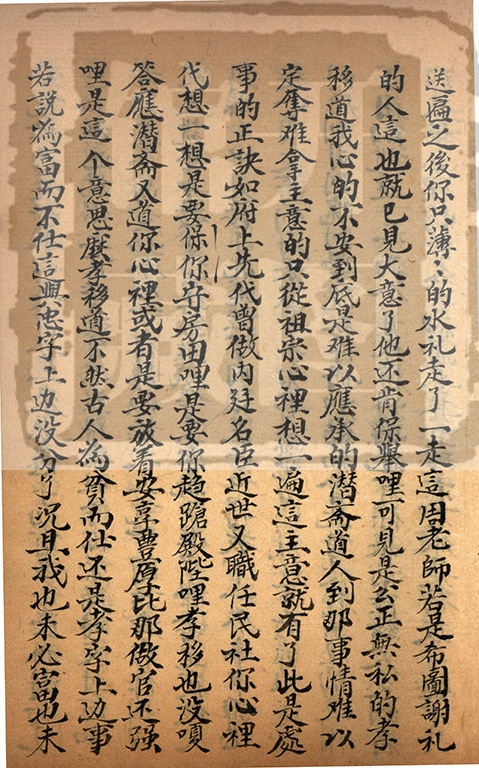 送匾之後你只薄〻的水礼走了一走這周老師若是希圖謝礼
的人這也就已見大意了他还肯保舉哩可見是公正無私的孝
移道我心的不安到底是难以應承的潜斋道人到那事情难以
定奪难拿主意的只從祖宗心裡想一遍這主意就有了此是處
事的正訣如府上先代曾做内廷名臣近世又職任民社你心裡
代想一想是要保你守房田哩是要你趋蹌殿陛哩孝移也没嗄
答應潜斋又道你心裡或者是要放着安享豊厚比那做官还强
哩是這个意思麽孝移道不然古人為貧而仕还是孝字上边事
若說為富而不仕這與忠字上边没分了况且我也未必富也未